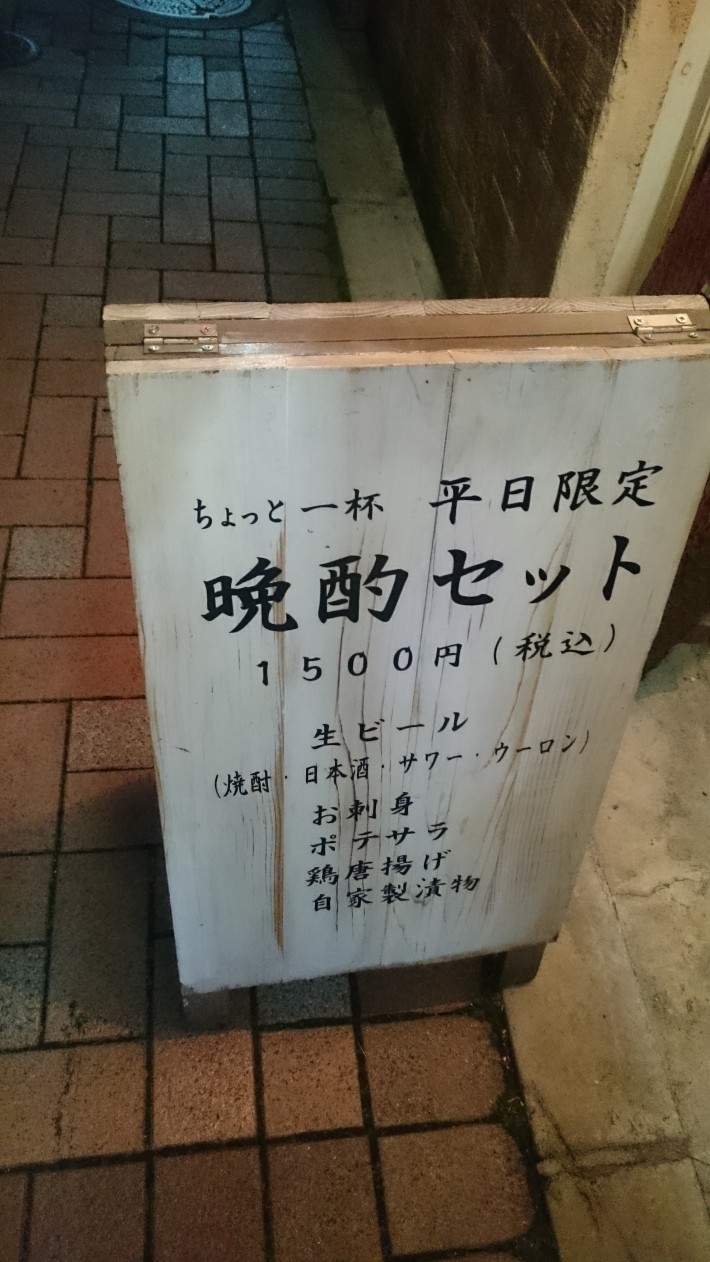 ちょっと一杯 平日限定
晩酌セット
1500円(税込)
生ビール
(焼酎・日本酒・サワー・ウーロン)
お刺身
ポテサラ
鶏唐揚げ
自家製漬物